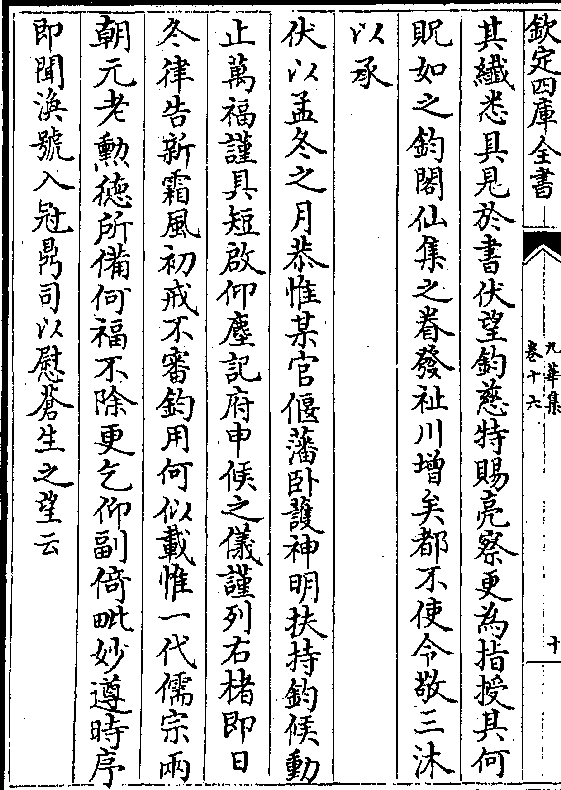 欽定四庫全書
九華集
卷十六
十
其纖悉具見於書伏望鈞慈特賜亮察更為指授其何
貺如之鈞閤仙集之眷發祉川增矣都不使令敬三沐
以承
伏以孟冬之月恭惟某官偃藩卧護神明扶持鈞候動
止萬福謹具短啟仰塵記府申候之儀謹列右楮即日
冬律告新霜風初戒不審鈞用何似載惟一代儒宗兩
朝元老勲徳所備何福不除更乞仰副倚毗妙遵時序
即聞渙號入冠鼎司以慰蒼生之望云